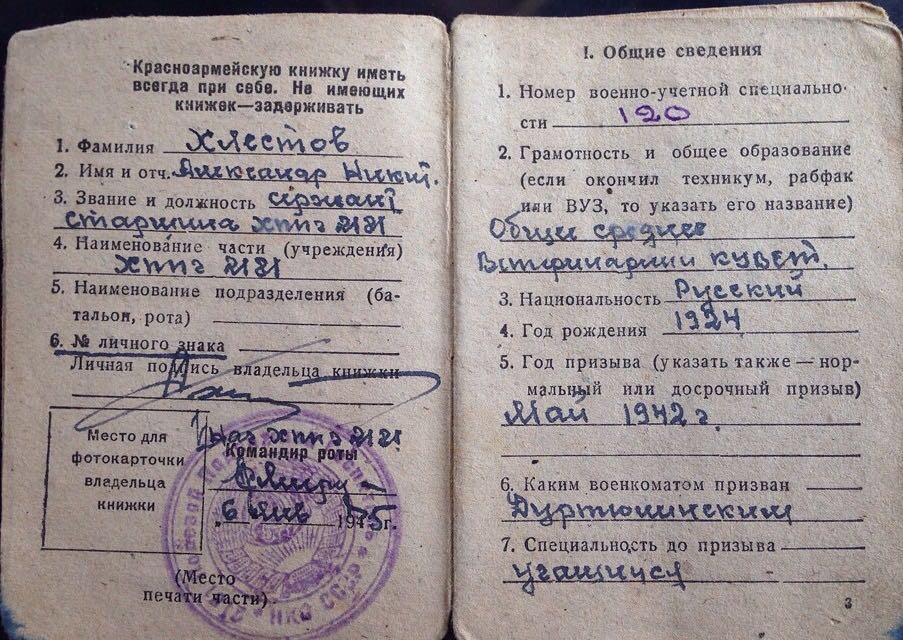 Красноармейскую книжку иметь
всегда при себе. Не имеющих
книжек—задерживать
1. Фамилия Хлестов
2. Имя и отч. Александр Никит.
3. Звание и должность сержант
старшина ХППГ 2121
4. Наименование части (учреждения)
ХППГ 2121
5. Наименование подразделения (ба-
тальон, рота)
6. № личного знака
Личная подпись владельца книжки
Место для
фотокарточки
владельца
книжки
Нач ХППГ 2121
Командир роты
„6 янв 1945г.
(Место
печати части)
НКО СССР
I. Общие сведения
1. Номер военно-учетной специально-
сти 120
2. Грамотность и общее образование
(если окончил техникум, рабфак
или ВУЗ, то указать его название)
Общее среднее
3. Национальность Русский
4. Год рождения 1924
5. Год призыва (указать также — нор-
мальный или досрочный призыв)
Май 1942 г.
6. Каким военкоматом призван
Дуртюлинским
7. Специальность до призыва
учащийся
3